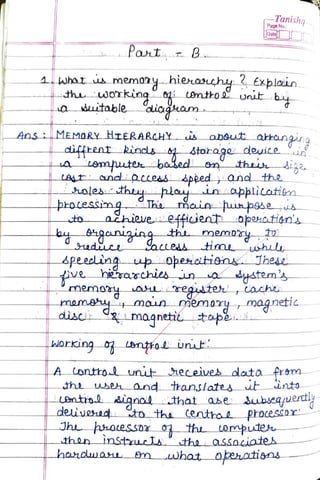 Tanishq
Page No.
Date
Part - B
1. What is memory hierarchy ? Explain
the working of control unit by
a suitable diagram.
Ans : MEMORY HIERARCHY is about arranging
diffrent kinds of storage device in
a computer based on their size,
cost and access speed, and the
roles they play in application
processing. The main purpose is
to achieve efficient operation's
by organizing the memory to
reduce access time while
speeding up operations. These
five hierarchies in a system's
memory are register, cache
memory, main memory, magnetic
disc & magnetic tape.
Working of control unit:
A control unit receives data from
the user and translates it into
control signal that are subsequently
delivered to the central processor.
The processor of the computer
then instructs the associates
hardware on what operations